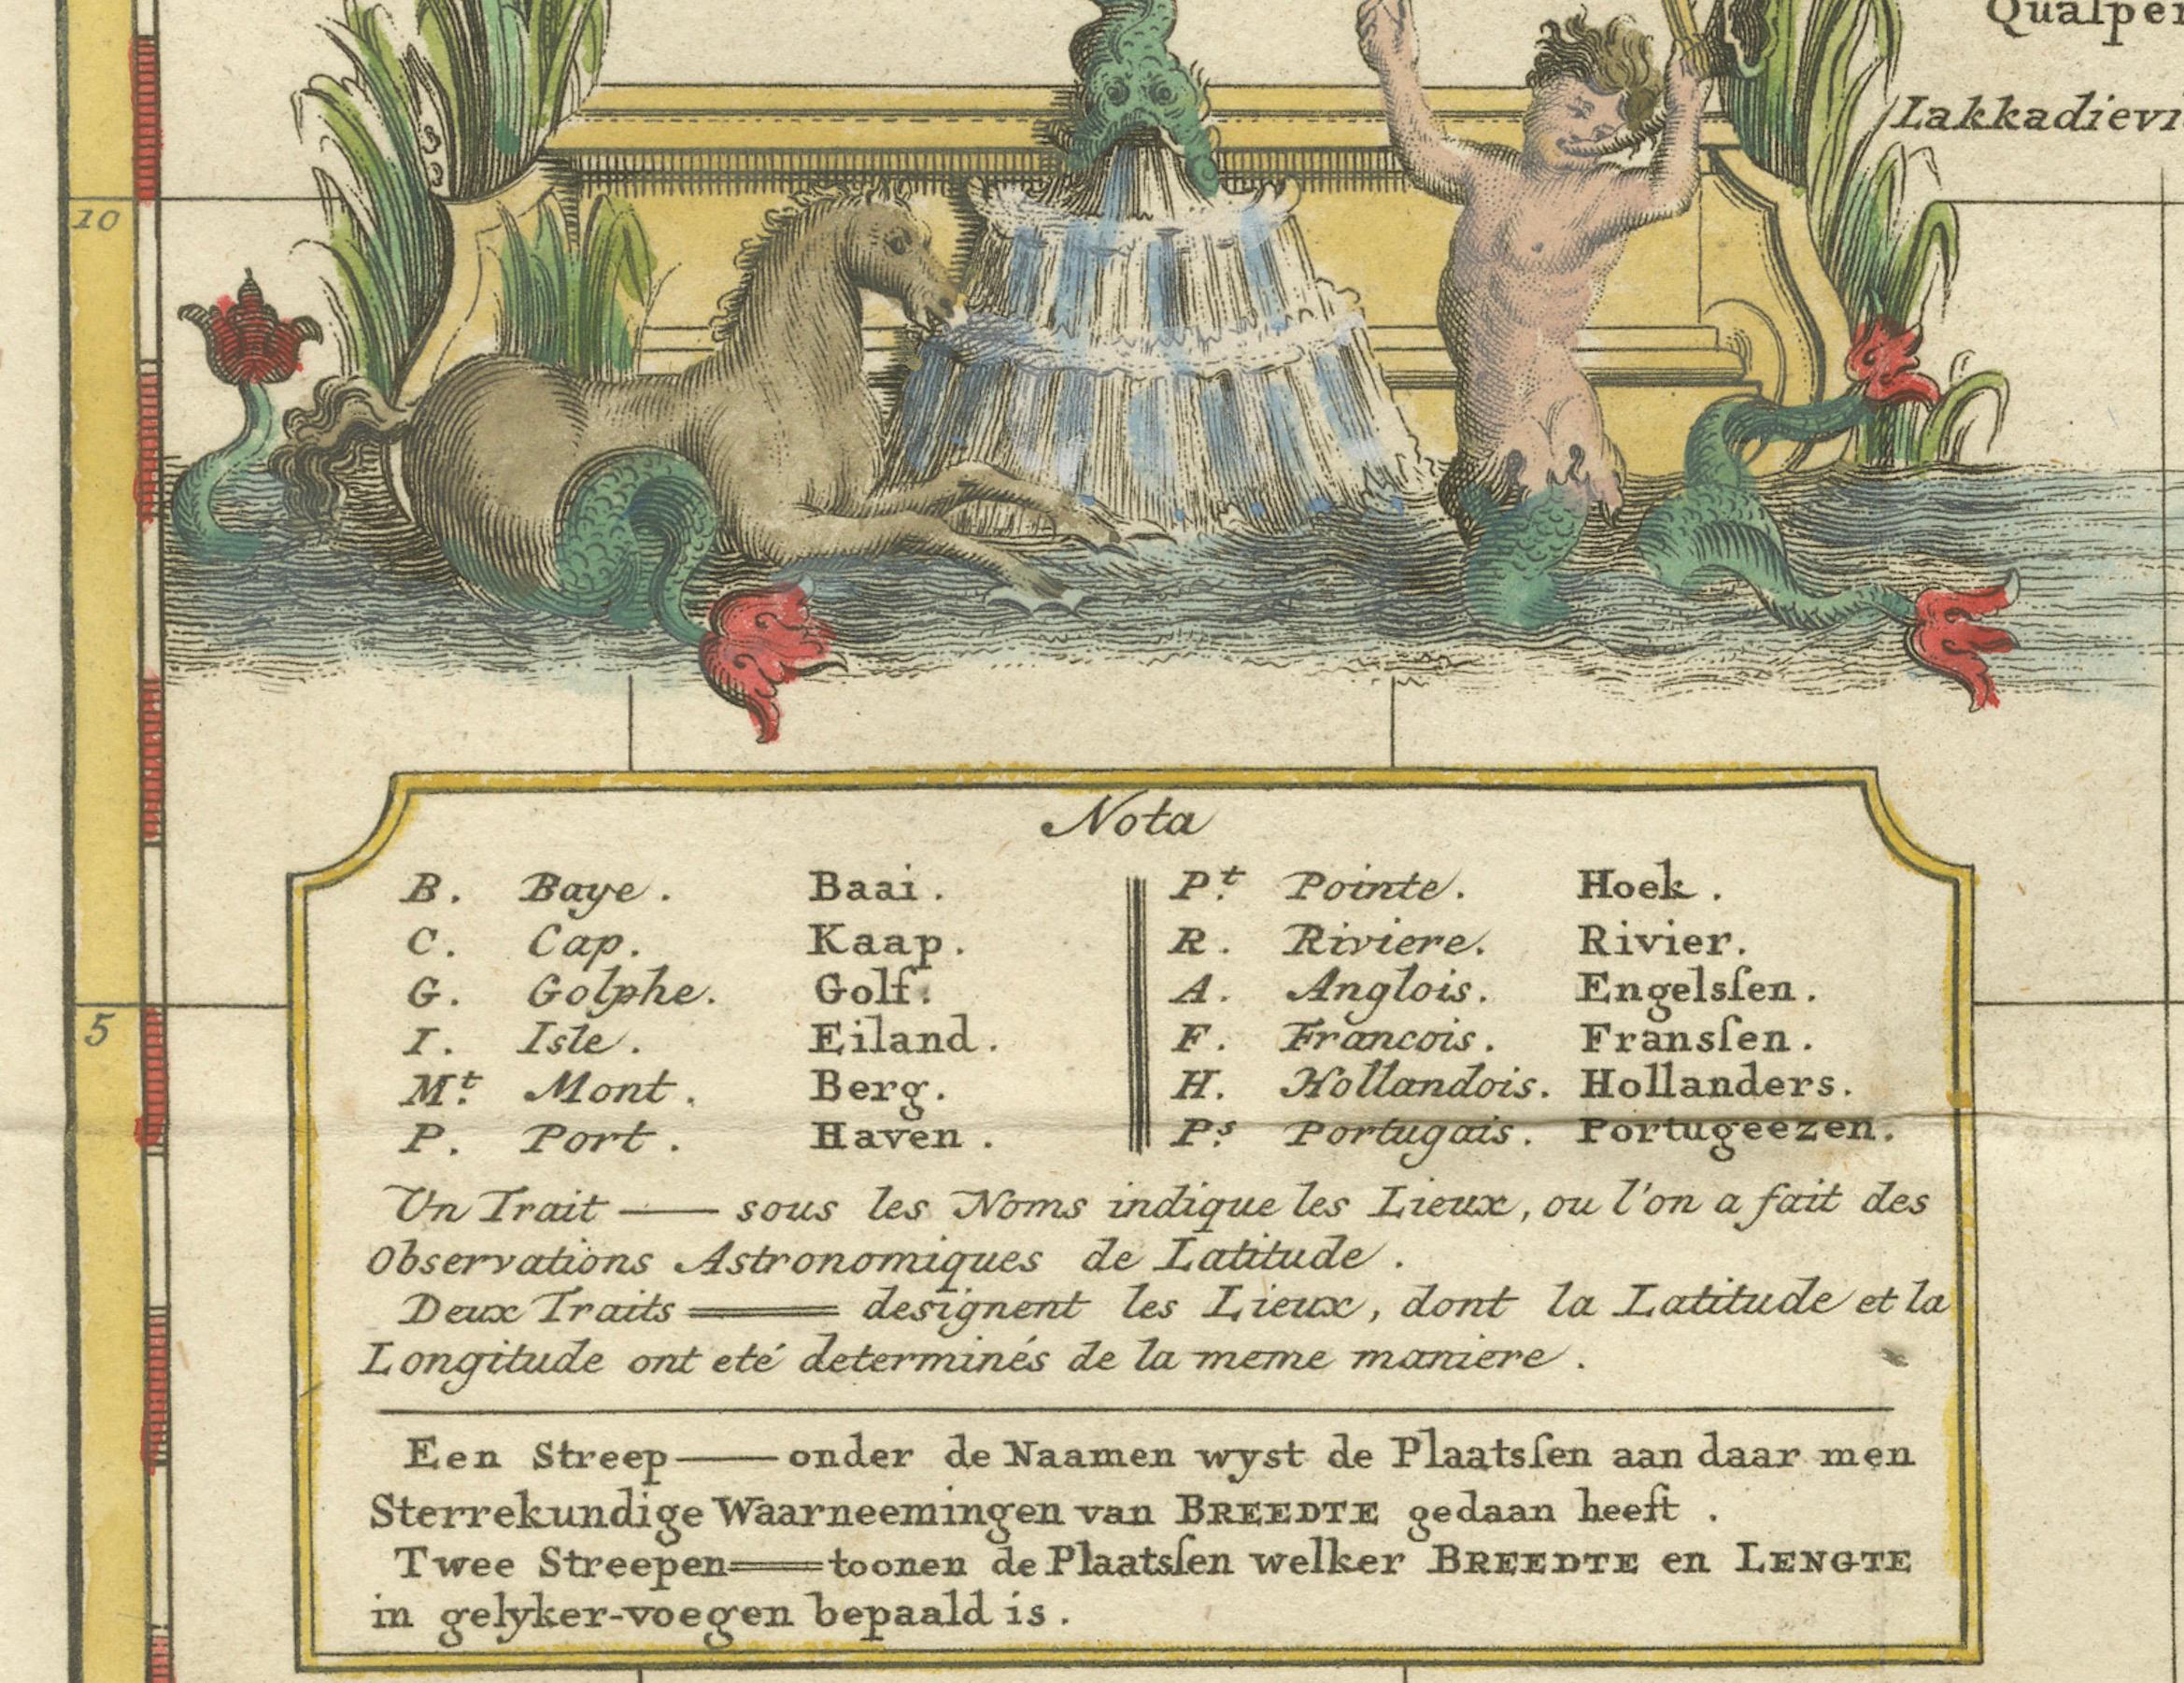 Qualper
Lakkadievi
10
5
Nota
B. Baye. Baai. Pt. Pointe. Hoek.
C. Cap. Kaap. R. Riviere. Rivier.
G. Golphe. Golf. A. Anglois. Engelsſen.
I. Isle. Eiland. F. Francois. Fransſen.
Mt. Mont. Berg. H. Hollandois. Hollanders.
P. Port. Haven. Ps. Portugais. Portugeezen.
Un Trait — sous les Noms indique les Lieux, ou l'on a fait des
Observations Astronomiques de Latitude.
Deux Traits ═ designent les Lieux, dont la Latitude et la
Longitude ont eté determinés de la meme maniere.
Een Streep — onder de Naamen wyst de Plaatsſen aan daar men
Sterrekundige Waarneemingen van BREEDTE gedaan heeft.
Twee Streepen ═ toonen de Plaatsſen welker BREEDTE en LENGTE
in gelyker-voegen bepaald is.